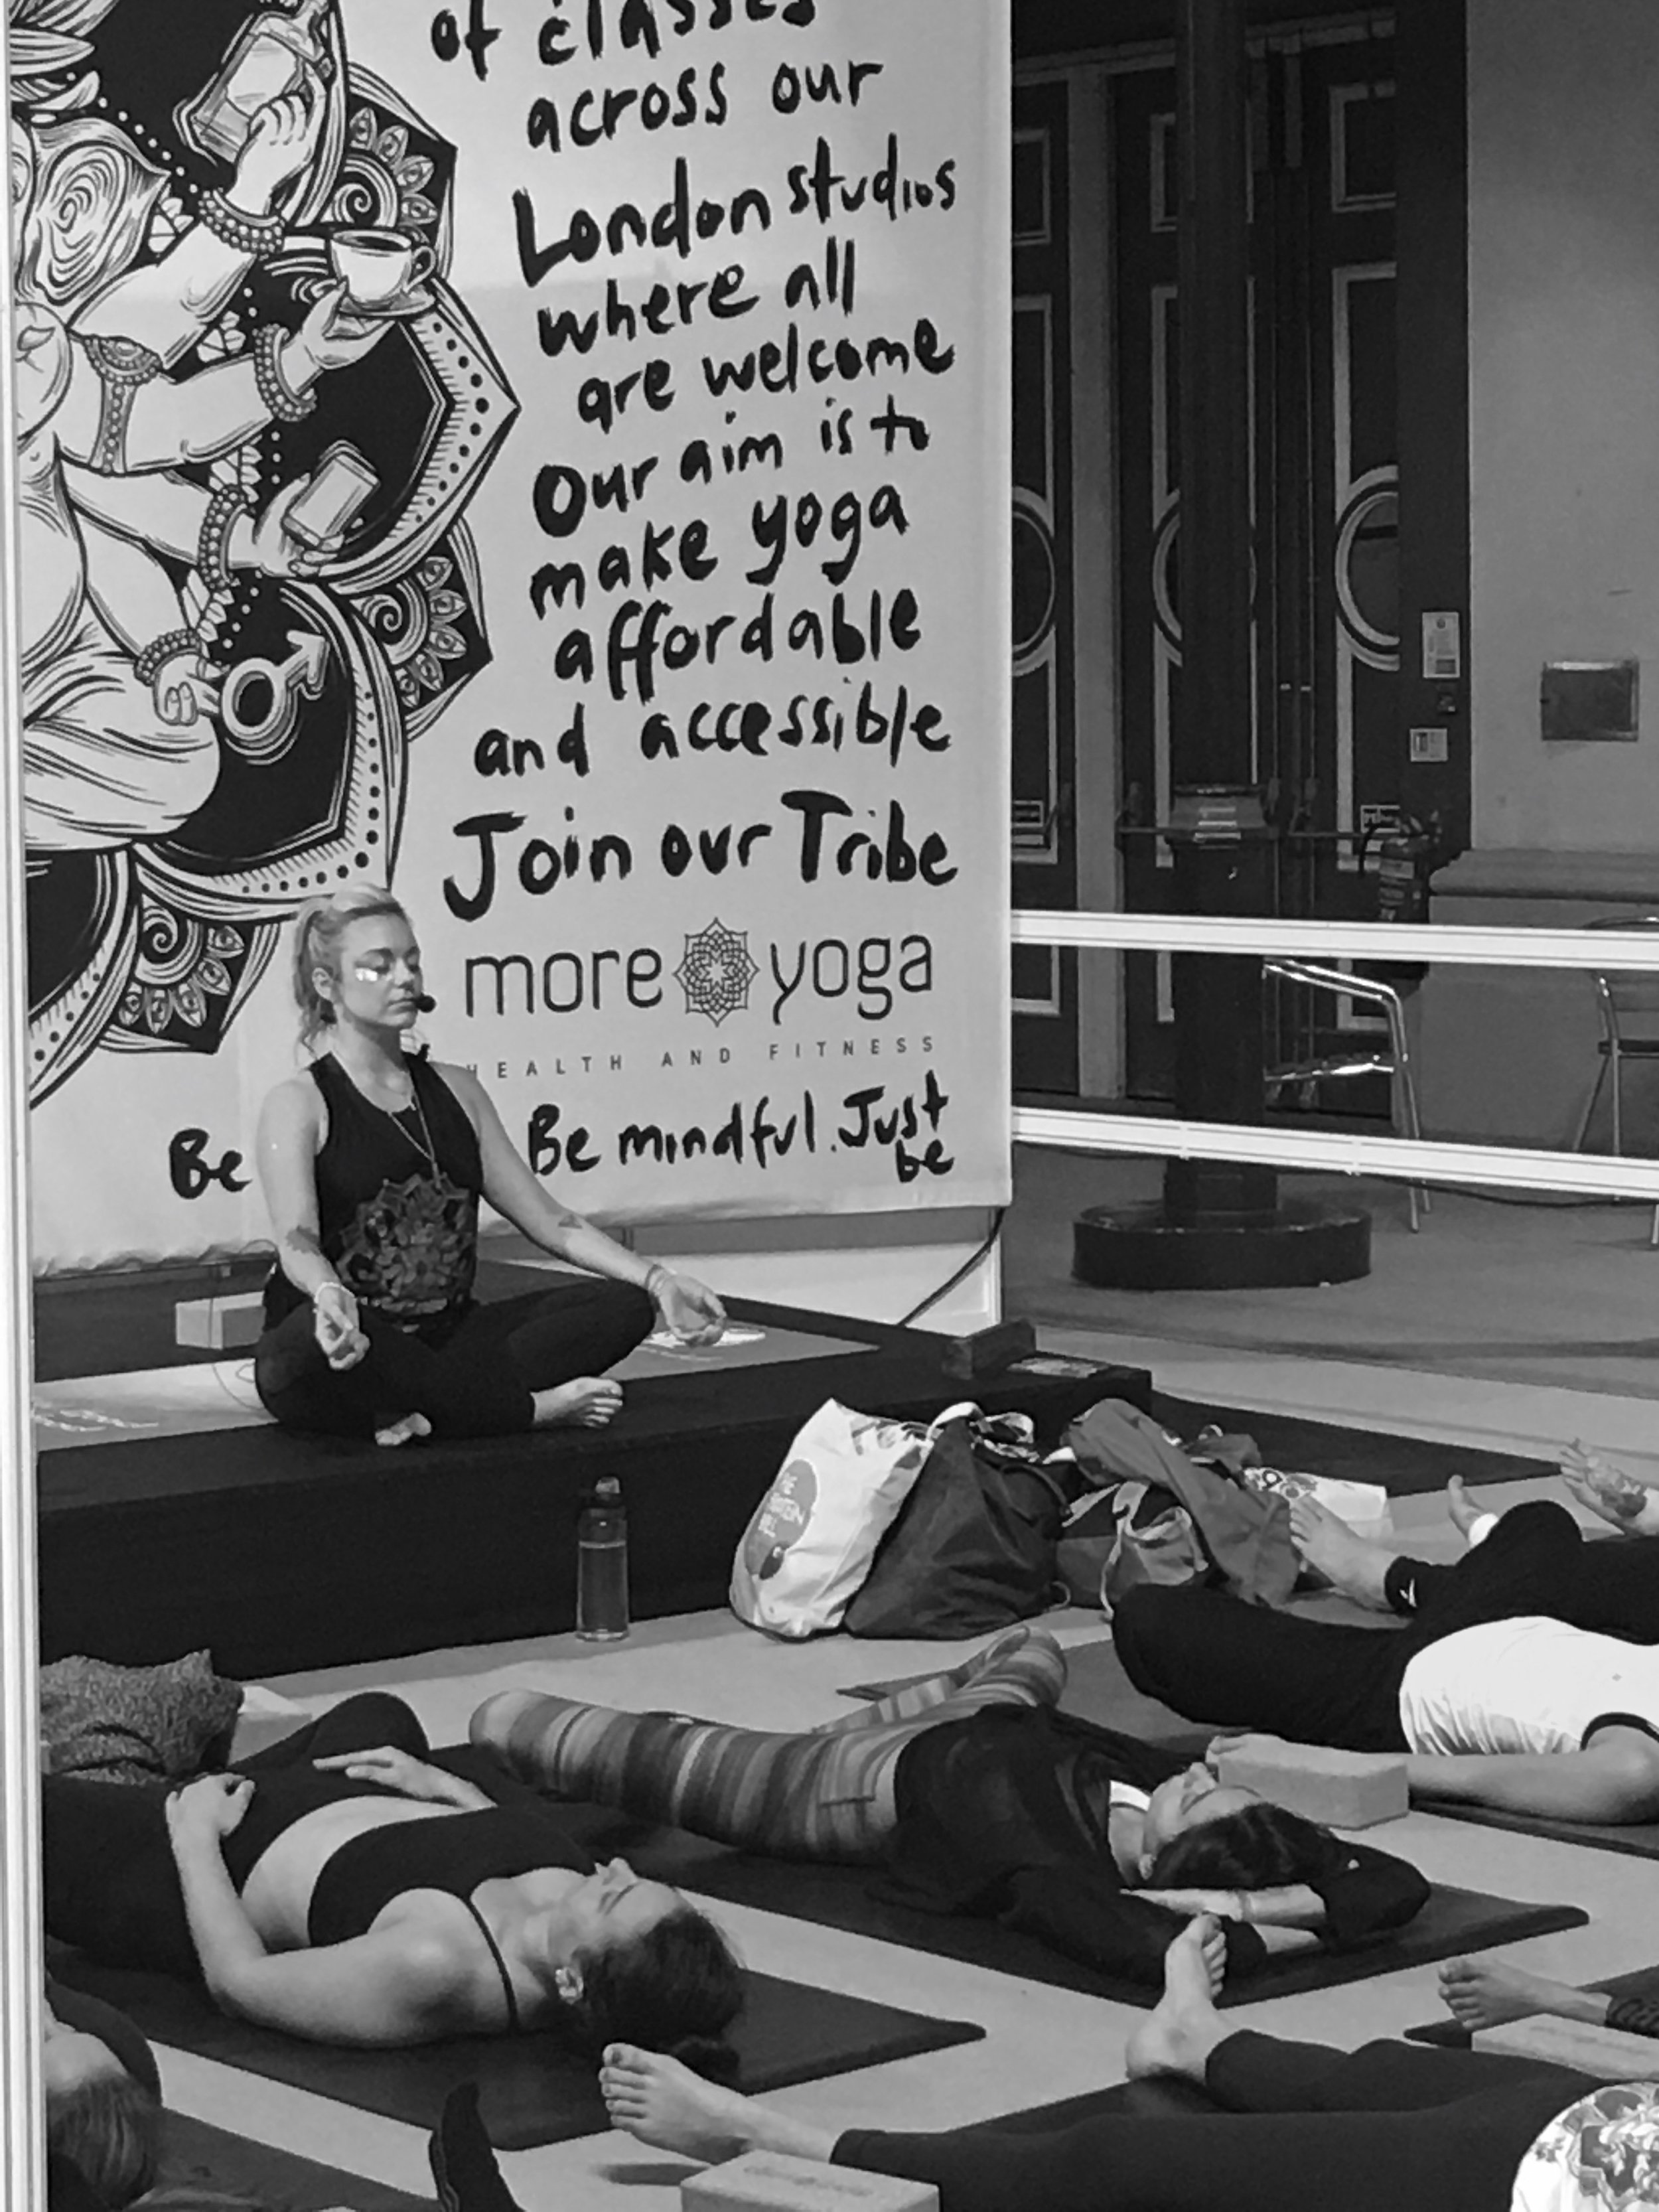 of classes
across our
London studios
where all
are welcome
Our aim is to
make yoga
affordable
and accessible
Join our Tribe
more yoga
HEALTH AND FITNESS
Be
Be mindful. Just
be